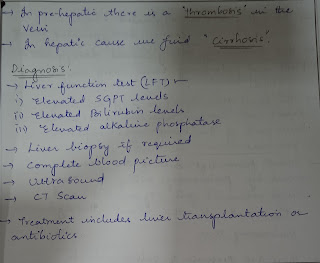 → In pre-hepatic there is a "thrombosis" in the
vein
→ In hepatic cause we find "Cirrhosis".
Diagnosis:
→ Liver function test (LFT) -
i) Elevated SGPT levels
ii) Elevated Bilirubin levels
iii) Elevated alkaline phosphatase
→ Liver biopsy if required
→ Complete blood picture
→ Ultrasound
→ CT Scan
→ Treatment includes liver transplantation or
antibiotics